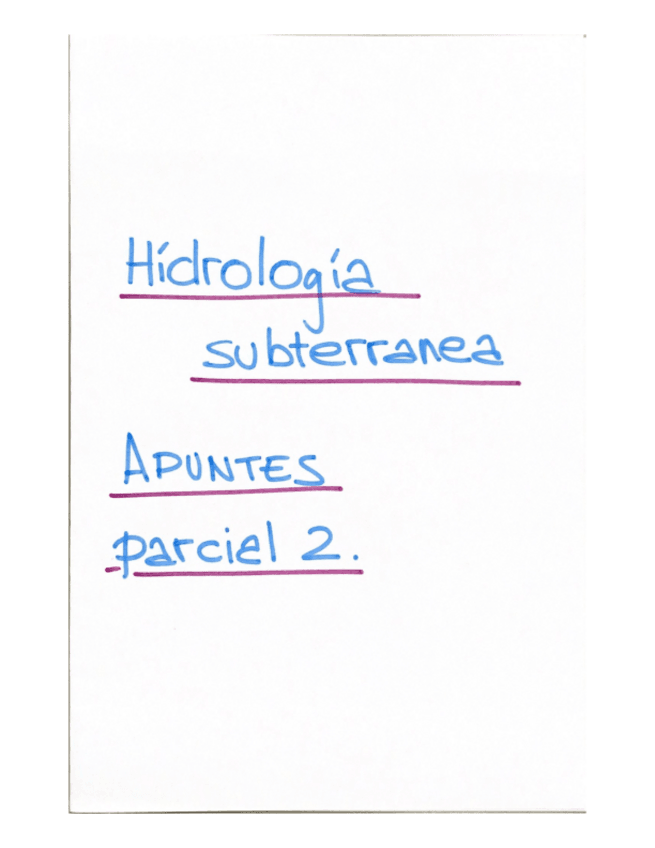 Hidrología
subterranea
APUNTES
parcial 2.